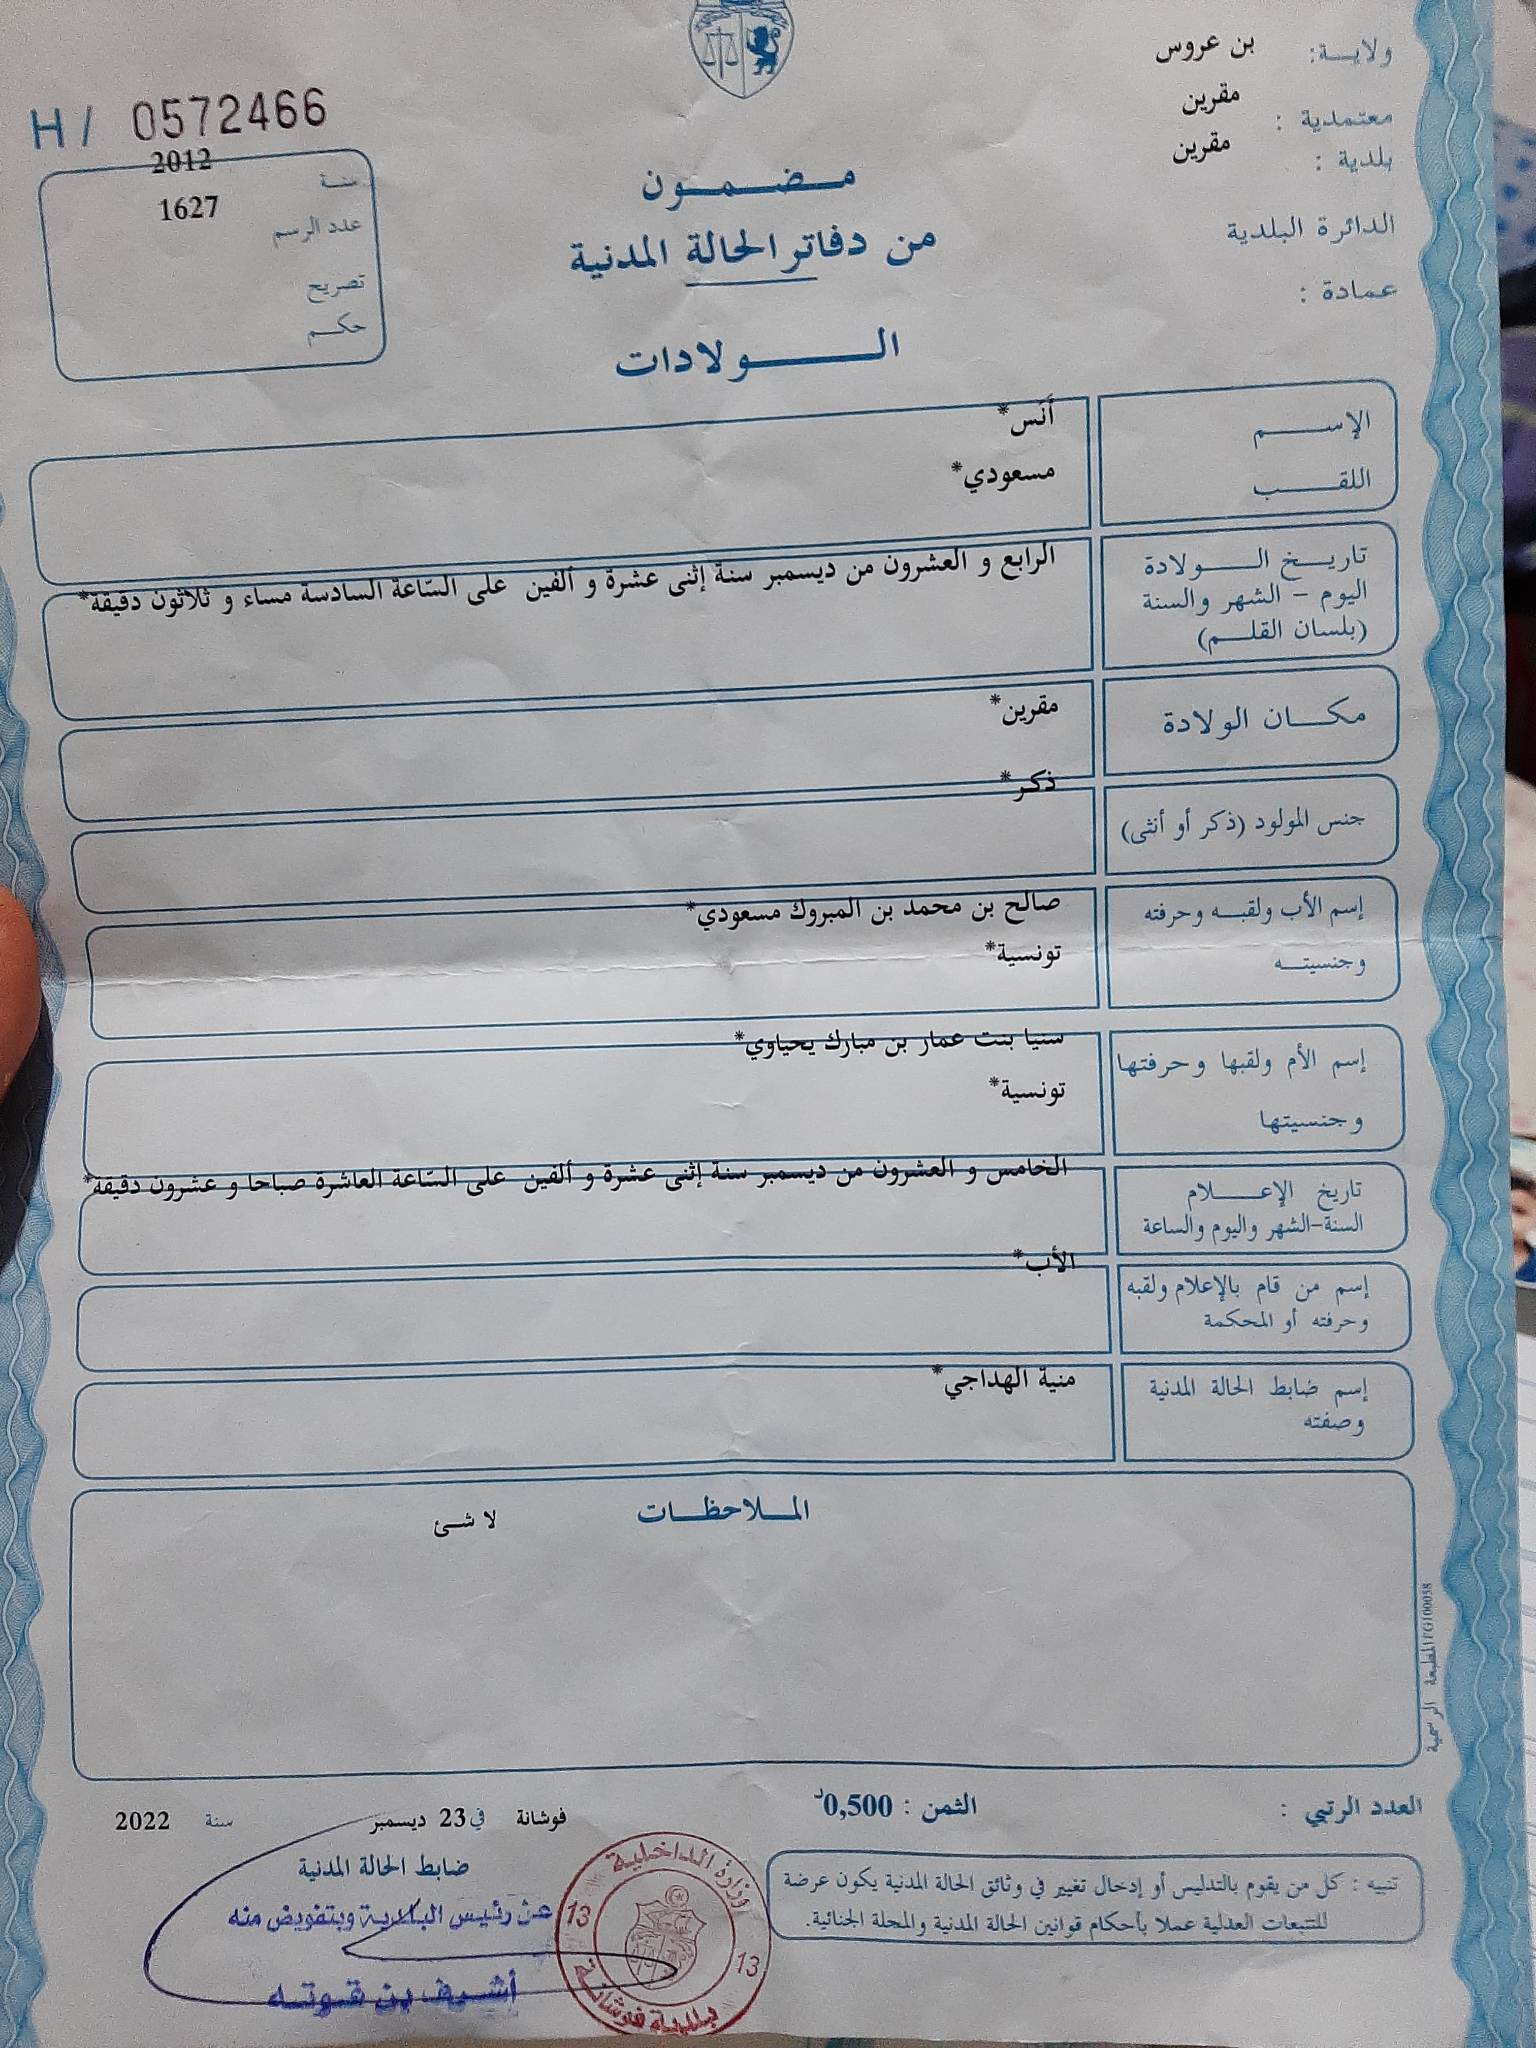 ولاية: بن عروس
معتمدية : مقرين
بلدية : مقرين
الدائرة البلدية
عمادة :
H / 0572466
سنة 2012
عدد الرسم 1627
تصريح
حكم
مضمون
من دفاتر الحالة المدنية
الولادات
الإسم أنس*
اللقب مسعودي*
تاريخ الولادة
اليوم - الشهر والسنة
(بلسان القلم)
الرابع و العشرون من ديسمبر سنة إثنى عشرة و ألفين على السّاعة السادسة مساء و ثلاثون دقيقة*
مكان الولادة مقرين*
جنس المولود (ذكر أو أنثى) ذكر*
إسم الأب ولقبه وحرفته صالح بن محمد بن المبروك مسعودي*
وجنسيته تونسية*
إسم الأم ولقبها وحرفتها سنيا بنت عمار بن مبارك يحياوي*
وجنسيتها تونسية*
تاريخ الإعلام
السنة-الشهر واليوم والساعة
الخامس و العشرون من ديسمبر سنة إثنى عشرة و ألفين على السّاعة العاشرة صباحا و عشرون دقيقة*
إسم من قام بالإعلام ولقبه
وحرفته أو المحكمة
الأب*
إسم ضابط الحالة المدنية
وصفته
منية الهداجي*
الملاحظات
لا شئ
المطبعة الرسمية FG100058
العدد الرتبي :
الثمن : 0,500د
فوشانة في 23 ديسمبر سنة 2022
ضابط الحالة المدنية
عن رئيس البلدية وبتفويض منه
أشرف بن قوته
وزارة الداخلية
13
13
بلدية فوشانة
تنبيه : كل من يقوم بالتدليس أو إدخال تغيير في وثائق الحالة المدنية يكون عرضة
للتتبعات العدلية عملا بأحكام قوانين الحالة المدنية والمجلة الجنائية.